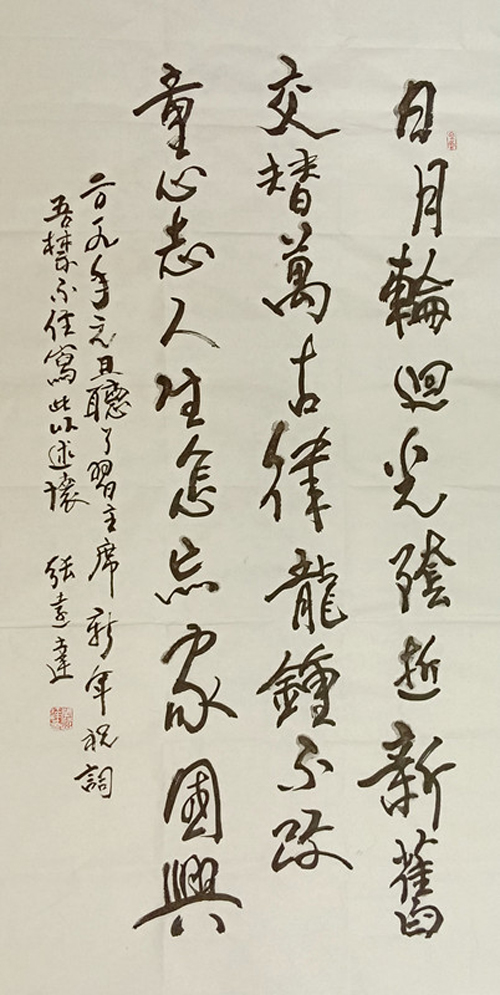 日月輪迴光陰逝新舊
交替萬古律龍鍾不改
童心志人生怎忘家國興
一九年元旦聽了習主席新年祝詞
吾禁不住寫此以述懷 張遠達